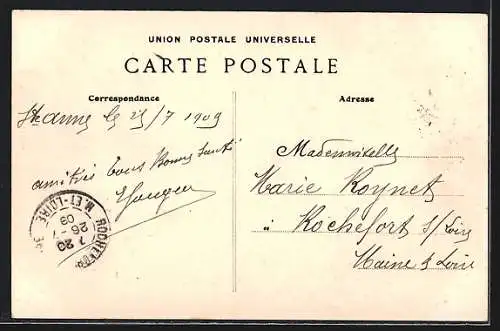 UNION POSTALE UNIVERSELLE
CARTE POSTALE
Correspondance
Adresse
Ste anne le 25/7 1909
amitiés bons Bonne Santé
Mademoiselle
Marie Roynet
à Rochefort s/Loire
Maine & Loire
ROCHEFORT
M.-ET-LOIRE
7 20
26 - 7
09